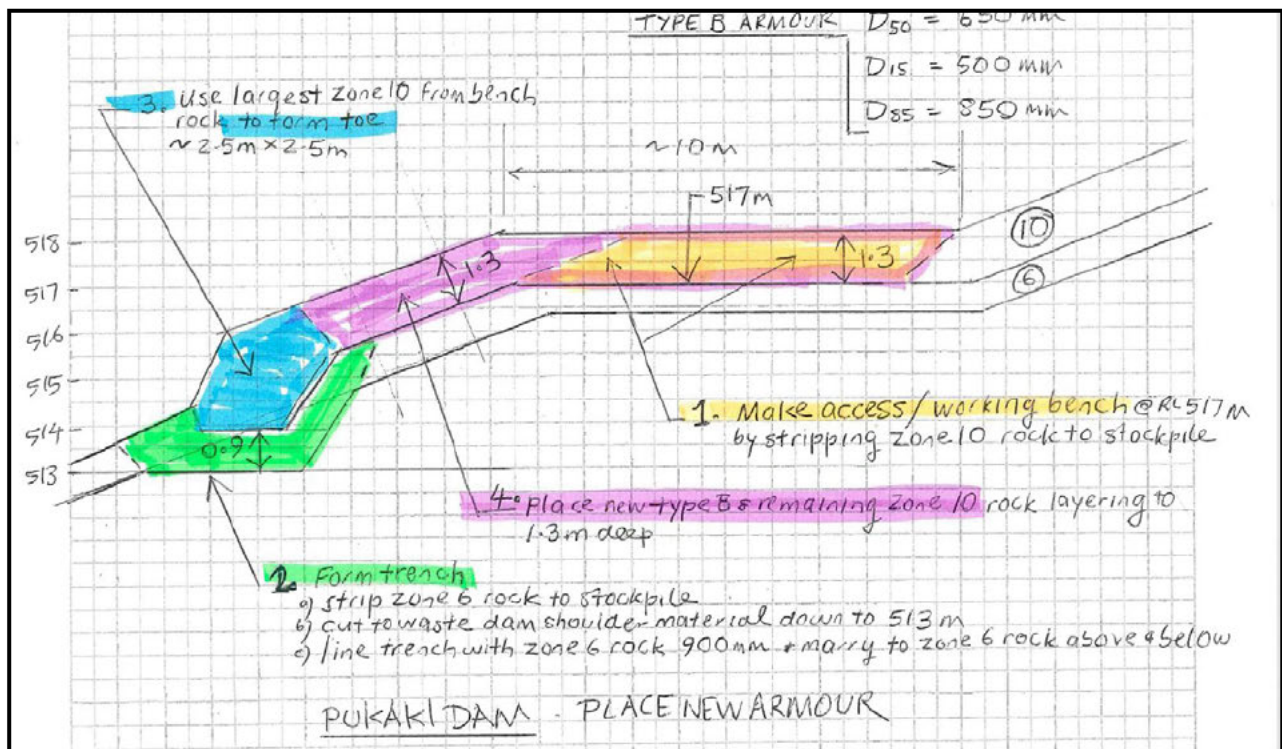 TYPE B ARMOUR D50 = 650 mm
D15 = 500 mm
D85 = 850 mm
3. Use largest zone 10 from bench
rock to form toe
~ 2.5m × 2.5m
~10 m
517m
518
517
516
515
514
513
1.3
1.3
10
6
0.9
1. Make access/working bench @ RL517M
by stripping zone 10 rock to stockpile
4. Place new type B & remaining zone 10 rock layering to
1.3m deep
2. Form trench
a) strip zone 6 rock to stockpile
b) cut to waste dam shoulder material down to 513 m
c) line trench with zone 6 rock 900mm & marry to zone 6 rock above & below
PUKAKI DAM - PLACE NEW ARMOUR